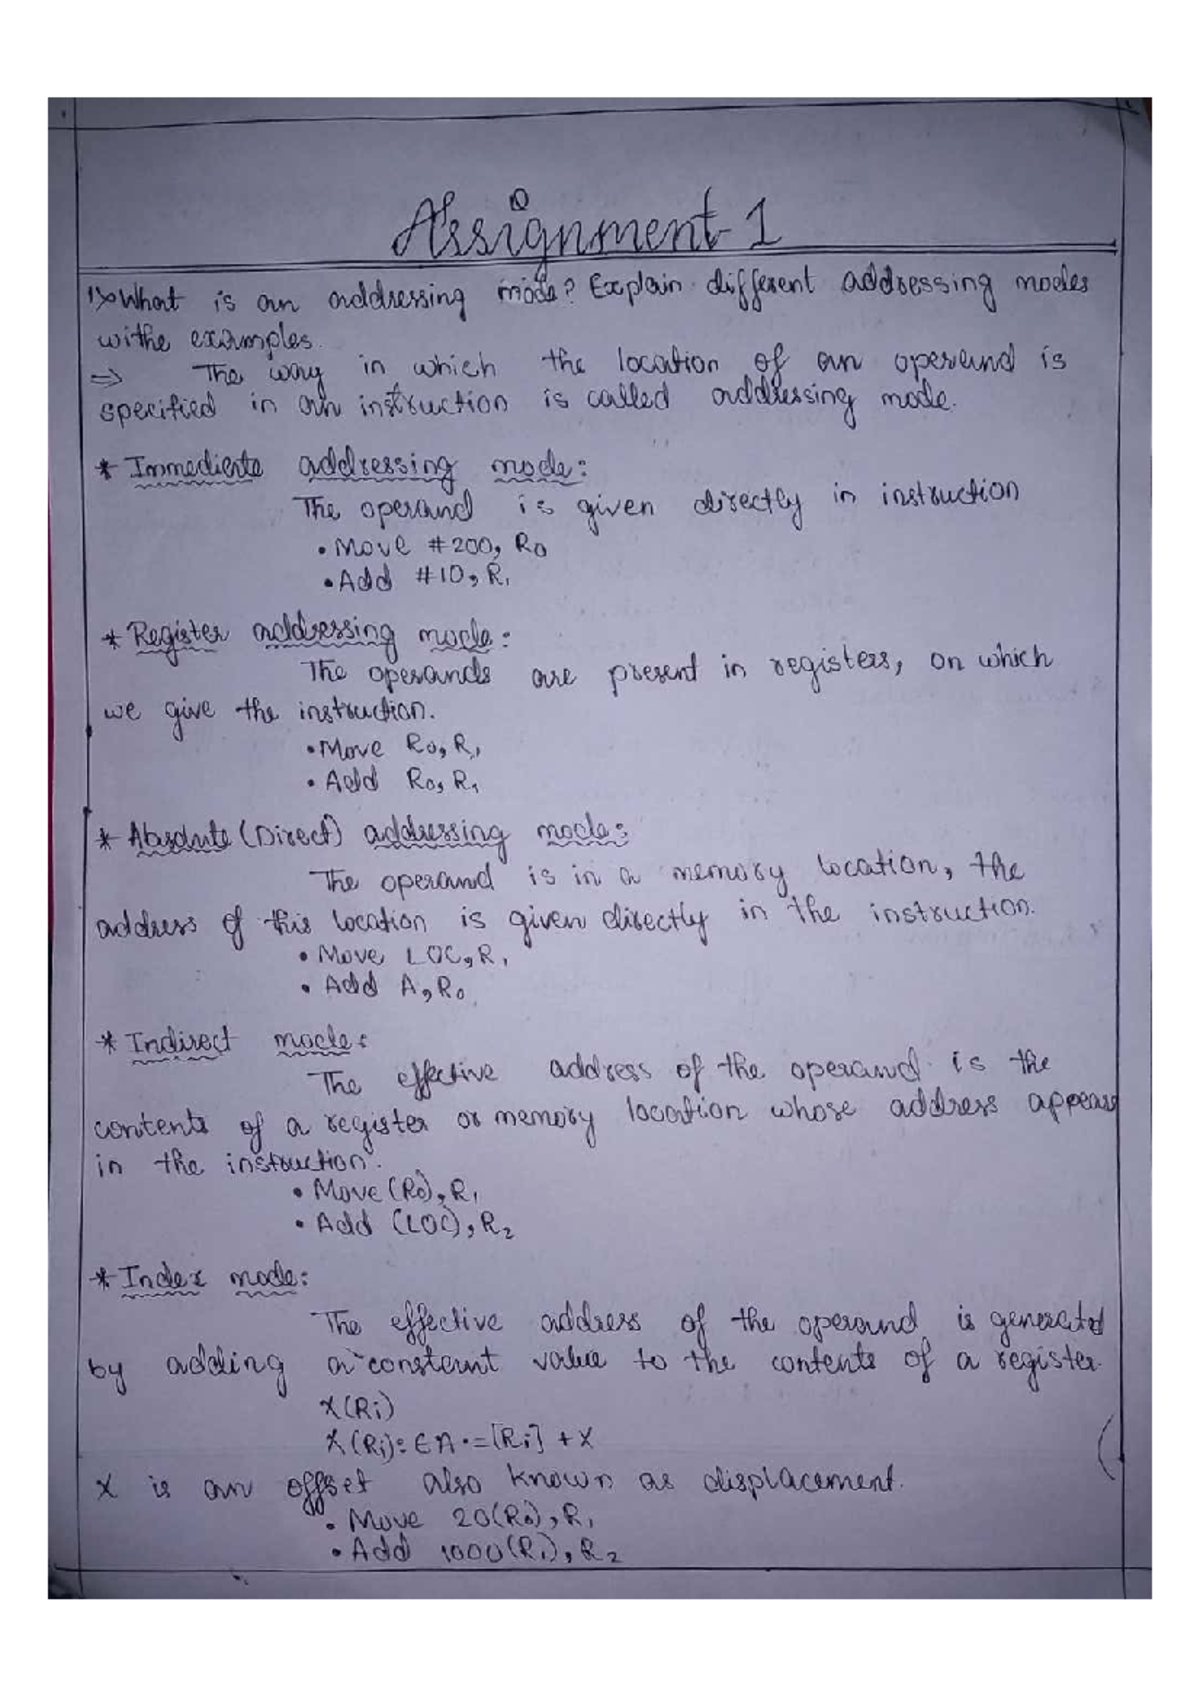 Assignment-1
1> What is an addressing mode? Explain different addressing modes
withe examples.
⇒ The way in which the location of an operand is
specified in an instruction is called addressing mode.
* Immediate addressing mode:
The operand is given directly in instruction
• Move #200, R0
• Add #10, R1
* Register addressing mode:
The operands are present in registers, on which
we give the instruction.
• Move R0, R1
• Add R0, R1
* Absolute (Direct) addressing mode:
The operand is in a memory location, the
address of this location is given directly in the instruction.
• Move LOC, R1
• Add A, R0
* Indirect mode:
The effective address of the operand is the
contents of a register or memory location whose address appears
in the instruction.
• Move (R0), R1
• Add (LOC), R2
* Index mode:
The effective address of the operand is generated
by adding a constant value to the contents of a register.
X(Ri)
X(Ri): EA = [Ri] + X
X is an offset also known as displacement.
• Move 20(R0), R1
• Add 1000(R1), R2